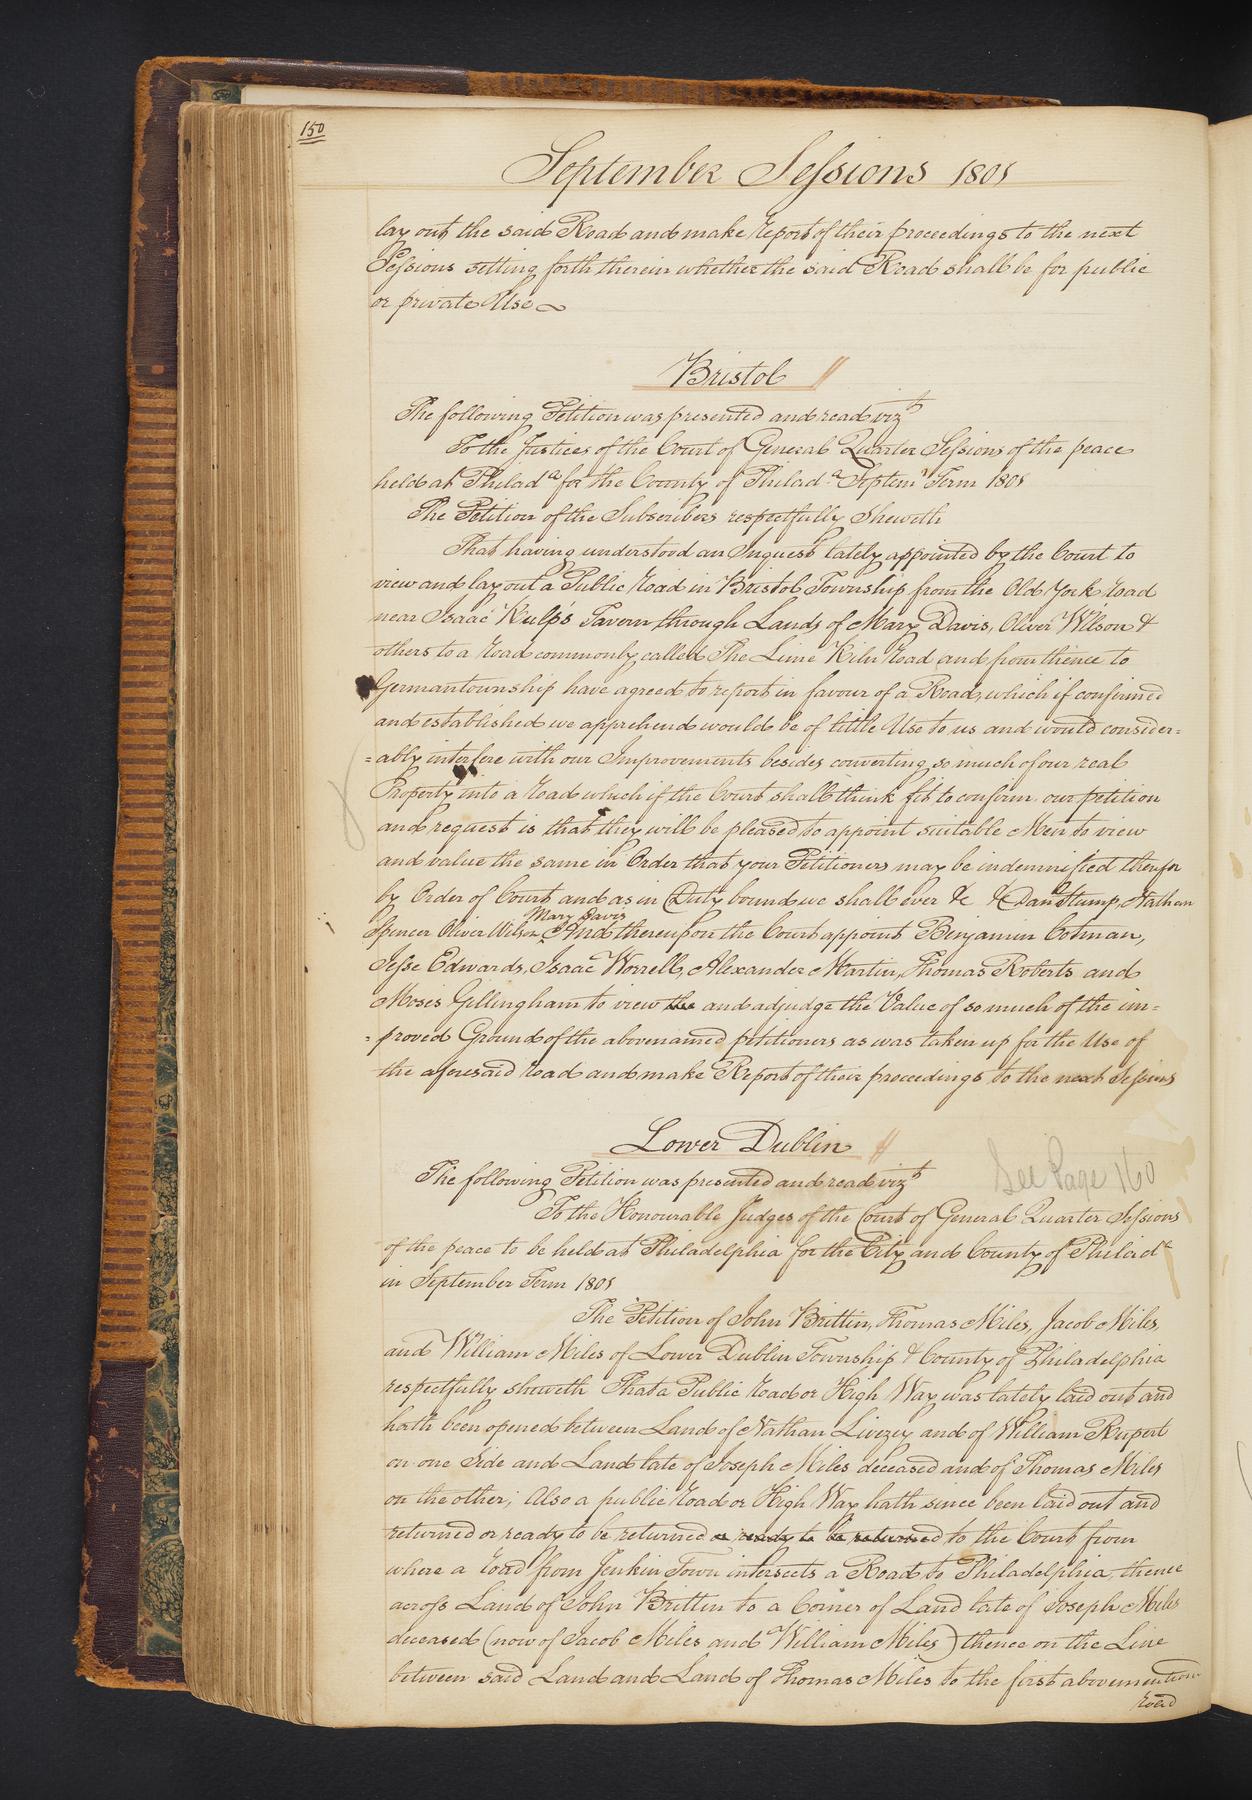 150
September Sessions 1801
lay out the said Road and make report of their proceedings to the next
Sessions setting forth therein whether the said Road shall be for public
or private Use
Bristol //
The following Petition was presented and read vizt
To the Justices of the Court of General Quarter Sessions of the peace
held at Philada for the County of Philada Septemr Term 1801
The Petition of the Subscribers respectfully Sheweth
That having understood an Inquest lately appointed by the Court to
view and lay out a Public road in Bristol Township from the Old York road
near Isaac Kulp's Tavern through Lands of Mary Davis, Oliver Wilson &
others to a road commonly called The Lime Kiln road and from thence to
Germantownship have agreed to report in favour of a Road, which if confirmed
and established we apprehend would be of little Use to us and would consider=
=ably interfere with our Improvements besides converting so much of our real
Property into a road which if the Court shall think fit to confirm our petition
and request is that they will be pleased to appoint suitable Men to view
and value the same in Order that your Petitioners may be indemnified therefor
by Order of Court and as in Duty bound we shall ever &c &c Danl Stump, Nathan
Mary Davis
Spencer Oliver Wilson, And thereupon the Court appoint Benjamin Cotman,
Jesse Edwards, Isaac Worrell, Alexander Martin, Thomas Roberts and
Moses Gillingham to view the and adjudge the Value of so much of the im=
=proved Ground of the abovenamed petitioners as was taken up for the Use of
the aforesaid road and make Report of their proceedings to the next Sessions
Lower Dublin //
See Page 160
The following Petition was presented and read vizt
To the Honourable Judges of the Court of General Quarter Sessions
of the peace to be held at Philadelphia for the City and County of Philada
in September Term 1801
The Petition of John Brittin, Thomas Miles, Jacob Miles,
and William Miles of Lower Dublin Township & County of Philadelphia
respectfully sheweth That a Public road or High Way was lately laid out and
hath been opened between Land of Nathan Livezey and of William Rupert
on one Side and Land late of Joseph Miles deceased and of Thomas Miles
on the other; Also a public road or High Way hath since been laid out and
returned or ready to be returned or ready to be returned to the Court from
where a road from Jenkin Town intersects a Road to Philadelphia, thence
across Land of John Brittin to a Corner of Land late of Joseph Miles
deceased (now of Jacob Miles and William Miles) thence on the Line
between said Land and Land of Thomas Miles to the first abovemention
road